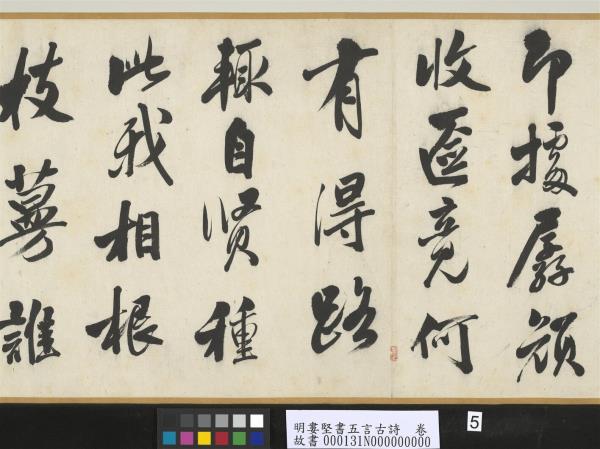 據孱顏
收竟何
有得路
輒自賢種
此我相根
枝蔓誰
明婁堅書五言古詩　卷
故書 000131N000000000
5